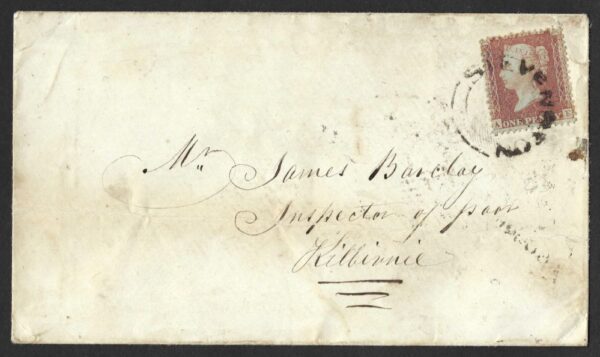 STEVENSTON
ONE PENNY
Mr James Barclay
Inspector of poor
Kilbirnie